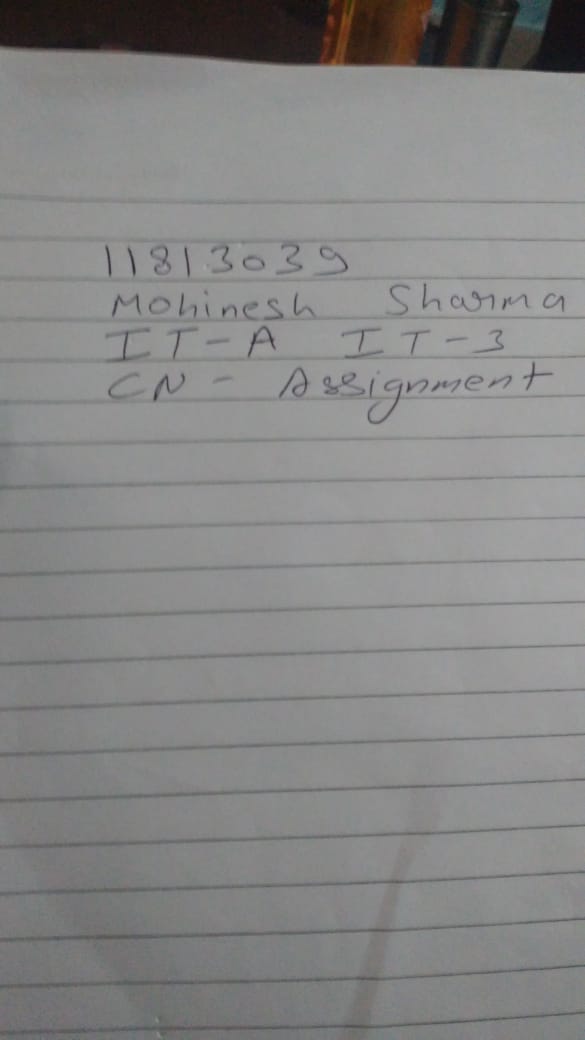 11813039
Mohinesh Sharma
IT-A IT-3
CN - Assignment